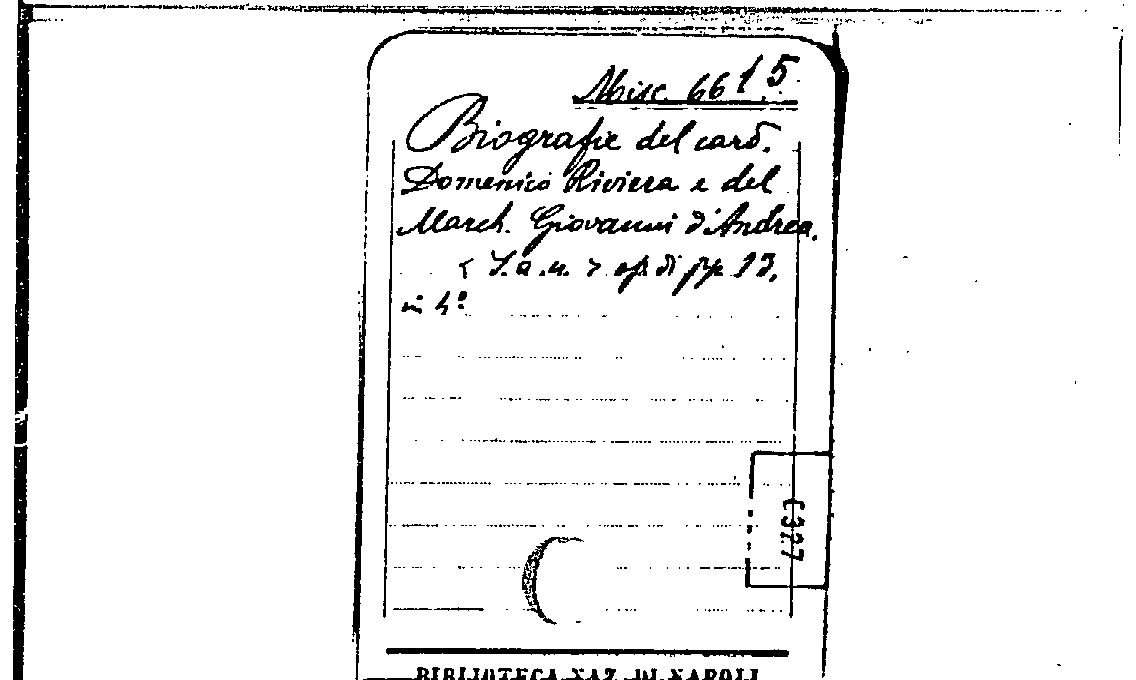 Misc. 66 1.5
Biografie del card.
Domenico Riviera e del
March. Giovanni d'Andrea.
< S.a.n. > op. di pp. 13,
in 4º
C327
BIBLIOTECA NAZ. DI NAPOLI